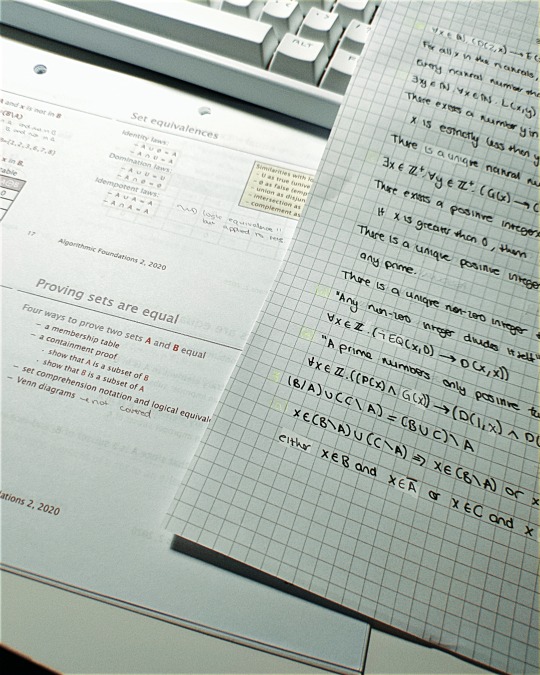 ALT
s and x is not in B
(B\A)
x in B.
table
17
Set equivalences
Identity laws:
– A ∪ Ø = A
– A ∩ U = A
Domination laws
– A ∪ U = U
– A ∩ Ø = Ø
Idempotent laws:
– A ∪ A = A
– A ∩ A = A
Similarities with
– U as true (unive
– Ø as false (emp
– union as disjun
– intersection as
– complement as
logic equivalence!!
but applied to sets
Algorithmic Foundations 2, 2020
Proving sets are equal
Four ways to prove two sets A and B equal
– a membership table
– a containment proof
· show that A is a subset of B
· show that B is a subset of A
– set comprehension notation and logical equivale
– Venn diagrams → not covered
ations 2, 2020
For all x in the naturals,
Every natural number
∃y∈ℕ ∀x∈ℕ. L(x,y)
There exists a number y in
x is strictly less than y
There is a unique natural nu
∃x∈ℤ⁺. ∀y∈ℤ⁺. (G(x) → (
There exists a positive integer
If x is greater than 0, then
There is a unique positive integer
any prime.
There is a unique non-zero integer
"Any non-zero integer divides itself"
∀x∈ℤ. (¬EQ(x,0) → D(x,x))
"A prime numbers only positive
∀x∈ℤ.((P(x) ∧ G(x)) → (D(1,x) ∧ D(
(B/A)∪(C\A) = (B∪C)\A
x∈(B\A)∪(C\A) ⇒ x∈(B\A) or x
either x∈B and x∈A̅ or x∈C and x